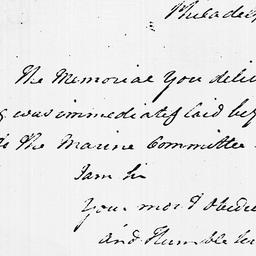 Philadelp
The Memorial you deli
g was immediately laid bef
to the Marine Committee
I am Sir
your most Obedie
and Humble Ser